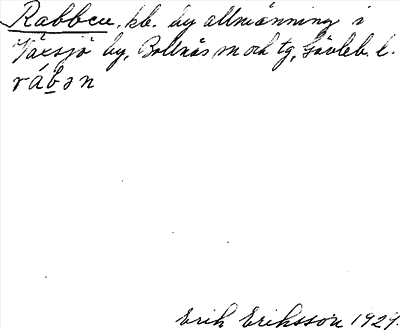 Rabben. kb. by allmänning i
Växsjö by, Bollnäs sn och tg, Gävleb. l.
rábən
Erik Eriksson 1929.